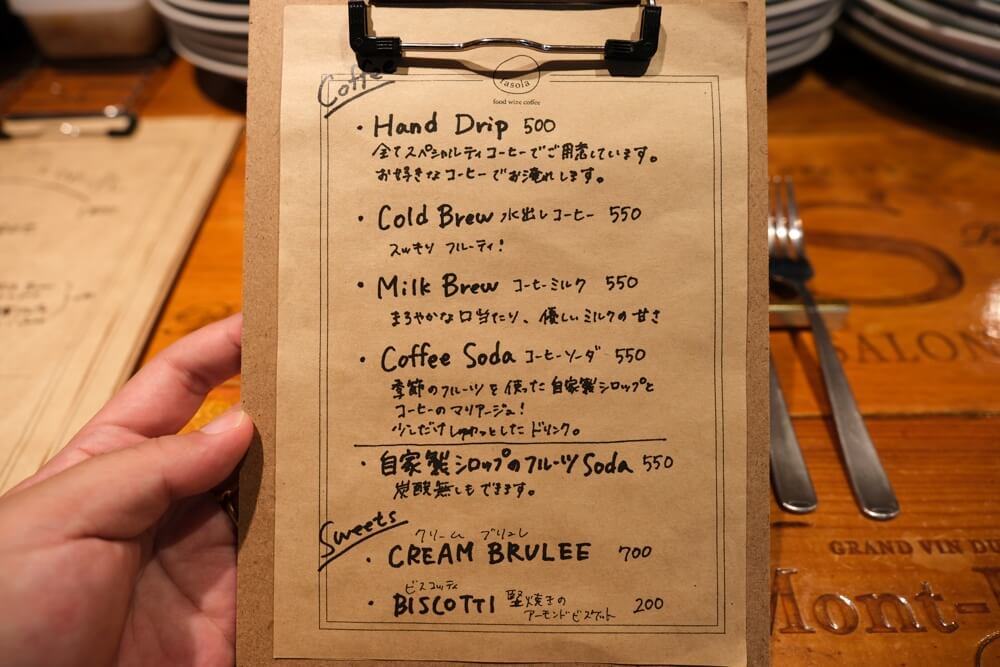 Coffee
rasola
food wine coffee
・Hand Drip 500
全てスペシャルティコーヒーでご用意しています。
お好きなコーヒーでお淹れします。
・Cold Brew 水出しコーヒー 550
スッキリ フルーティ!
・Milk Brew コーヒーミルク 550
まろやかな口当たり、優しいミルクの甘さ
・Coffee Soda コーヒーソーダ 550
季節のフルーツを使った自家製シロップと
コーヒーのマリアージュ!
少しだけしゅわっとしたドリンク。
・自家製シロップのフルーツSoda 550
炭酸無しもできます。
Sweets
クリーム ブリュレ
・CREAM BRULEE 700
ビスコッティ
・BISCOTTI 堅焼きの 200
アーモンドビスケット
SALON
GRAND VIN DU
Mont-